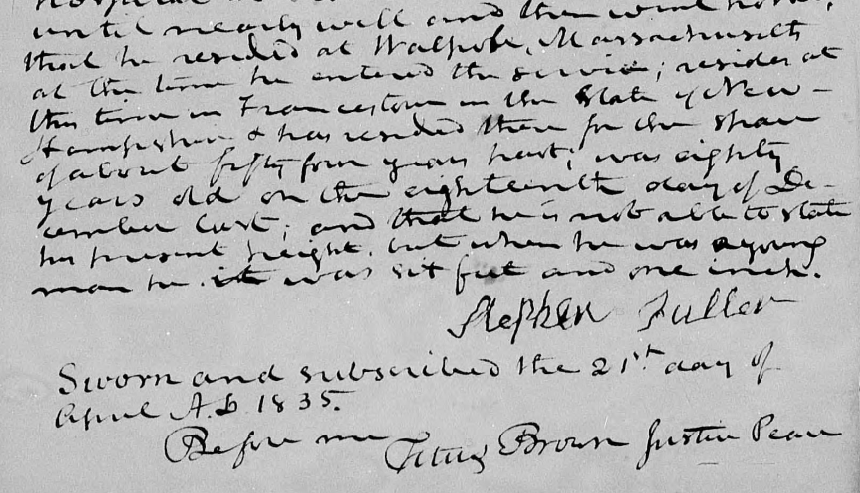 hospital
until nearly well and then went home;
that he resided at Walpole, Massachusetts
at the time he entered the service; resides at
this time in Francestown in the State of New-
Hampshire & has resided there for the
of about fifty four years past; was eighty
years old on the eighteenth day of De-
cember last; and that he is not able to state
his present height, but when he was a young
man he it was six feet and one inch.
Stephen Fuller
Sworn and subscribed the 21st day of
April A.D. 1835.
Before me Titus Brown Justice Peace